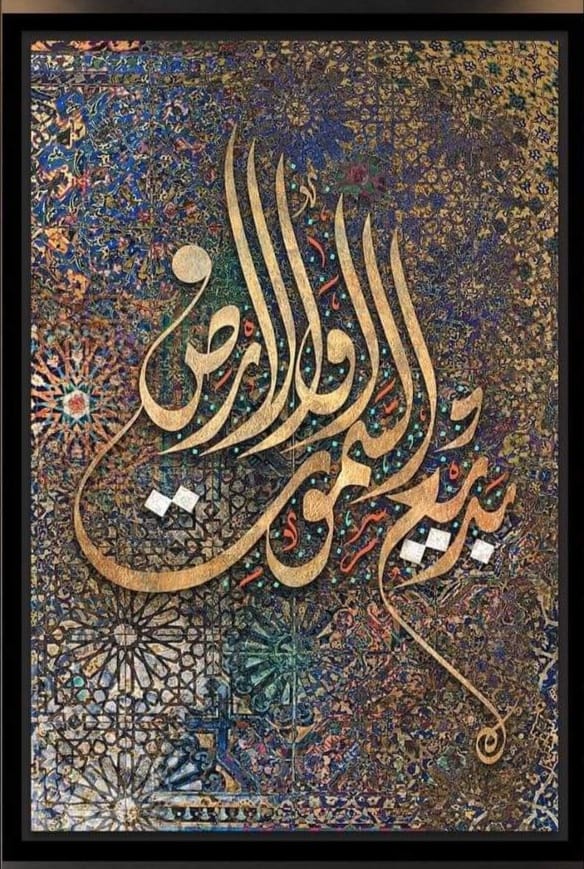 بديع السموت والارض